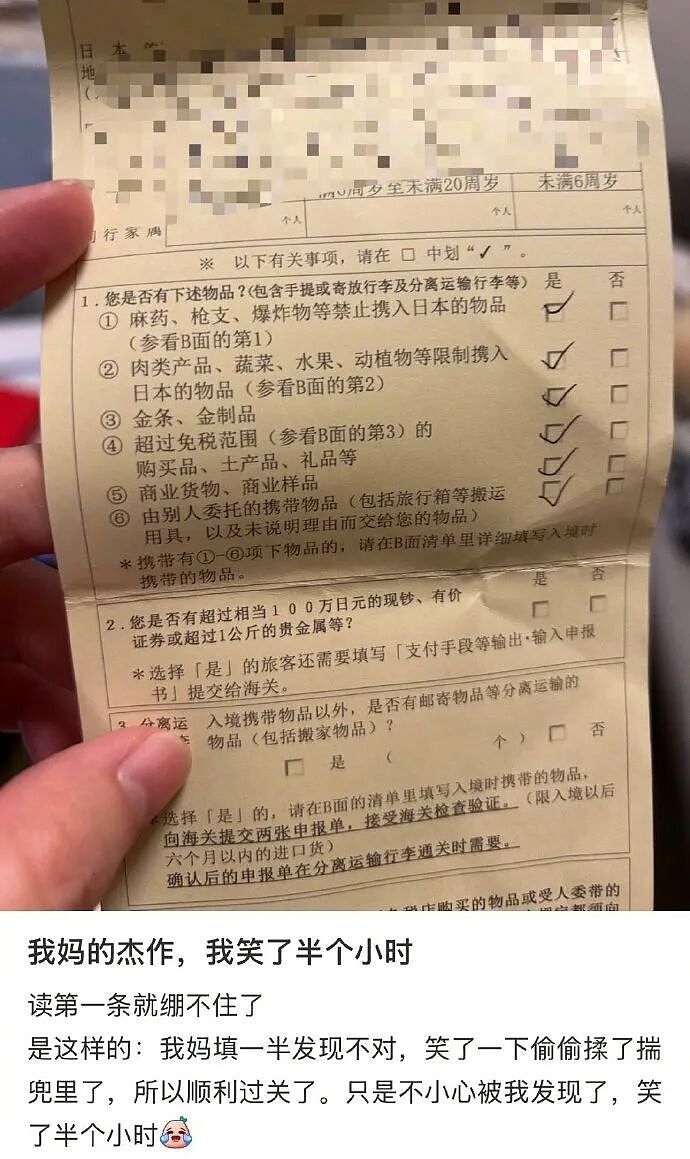 日 本
地
满6周岁至未满20周岁 未满6周岁
行 家 属 个人 个人 个人
※ 以下有关事项，请在 □ 中划“✓”。
1．您是否有下述物品？(包含手提或寄放行李及分离运输行李等) 是 否
① 麻药、枪支、爆炸物等禁止携入日本的物品
（参看B面的第1）
② 肉类产品、蔬菜、水果、动植物等限制携入
日本的物品（参看B面的第2）
③ 金条、金制品
④ 超过免税范围（参看B面的第3）的
购买品、土产品、礼品等
⑤ 商业货物、商业样品
⑥ 由别人委托的携带物品（包括旅行箱等搬运
用具，以及未说明理由而交给您的物品）
＊携带有①-⑥项下物品的，请在B面清单里详细填写入境时
携带的物品。
2．您是否有超过相当１００万日元的现钞、有价 是 否
证券或超过1公斤的贵金属等？
＊选择「是」的旅客还需要填写「支付手段等输出·输入申报
书」提交给海关。
3．分离运 入境携带物品以外，是否有邮寄物品等分离运输的
物品（包括搬家物品）？
□ 是 （ 个 ） □ 否
选择「是」的，请在B面的清单里填写入境时携带的物品，
向海关提交两张申报单，接受海关检查验证。（限入境以后
六个月以内的进口货）
确认后的申报单在分离运输行李通关时需要。
税店购买的物品或受人委带的
我妈的杰作，我笑了半个小时
读第一条就绷不住了
是这样的：我妈填一半发现不对，笑了一下偷偷揉了揣
兜里了，所以顺利过关了。只是不小心被我发现了，笑
了半个小时😂